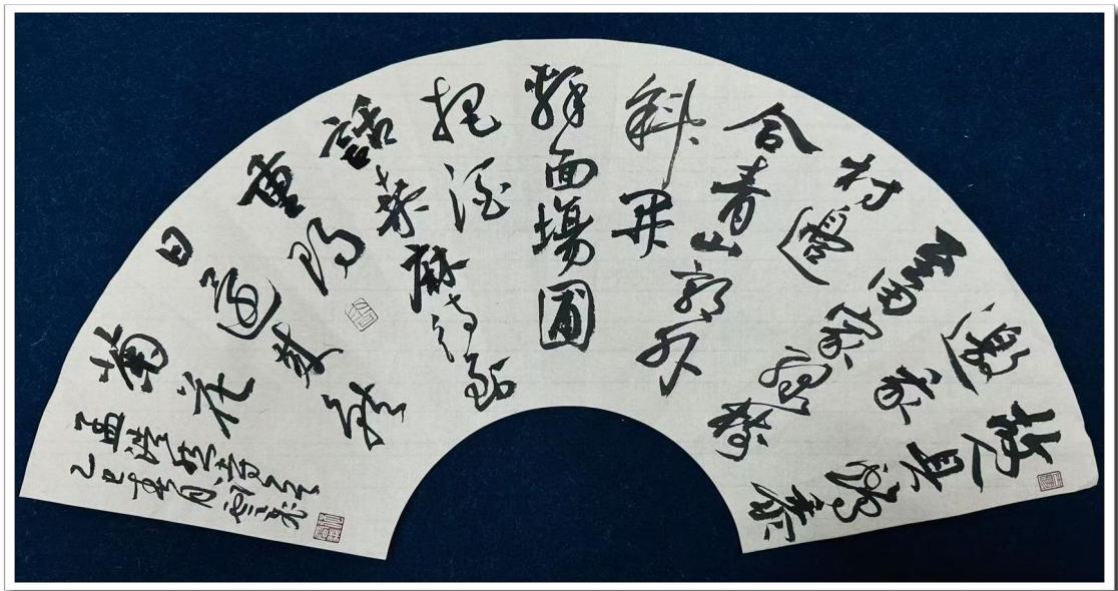 故人具鷄黍
邀我
至田家綠樹
村邊
合青山郭外
斜開
軒面場圃
把酒
話桑麻待到
重陽
日還來就
菊花
孟浩然
乙巳年